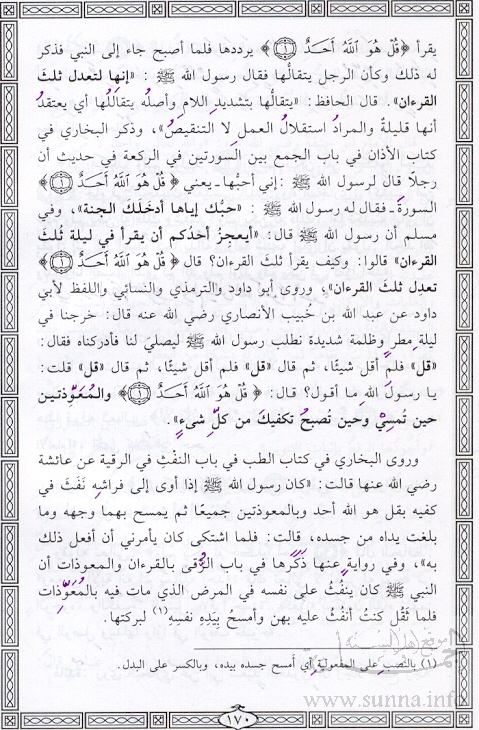 يقرأ ﴿قُلْ هُوَ اللَّهُ أَحَدٌ ۝١﴾ يرددها فلما أصبح جاء إلى النبي فذكر
له ذلك وكأن الرجل يتقالُّها فقال رسول الله ﷺ : «إنها لتعدل ثلث
القرءان». قال الحافظ: «يتقالُّها بتشديدِ اللامِ وأصلُه يتقاللُها أي يعتقدُ
أنها قليلةٌ والمرادُ استقلالُ العملِ لا التنقيصُ»، وذكر البخاري في
كتاب الأذان في باب الجمع بين السورتين في الركعة في حديث أن
رجلًا قال لرسول الله ﷺ : إني أحبُّها - يعني ﴿قُلْ هُوَ اللَّهُ أَحَدٌ ۝١﴾
السورةَ - فقال له رسول الله ﷺ : «حبُّك إياها أدخلَك الجنة»، وفي
مسلم أن رسول الله ﷺ قال: «أيعجِزُ أحدُكم أن يقرأ في ليلة ثلثَ
القرءان» قالوا: وكيف يقرأ ثلثَ القرءان؟ قال ﴿قُلْ هُوَ اللَّهُ أَحَدٌ ۝١﴾
تعدِل ثلثَ القرءان»، وروى أبو داود والترمذي والنسائي واللفظ لأبي
داود عن عبد الله بن خُبيب الأنصاري رضي الله عنه قال: خرجنا في
ليلةِ مطرٍ وظلمة شديدة نطلب رسول الله ﷺ ليصليَ لنا فأدركناه فقال:
«قل» فلم أقل شيئًا، ثم قال «قل» فلم أقل شيئًا، ثم قال «قل» قلت:
يا رسول الله ما أقول؟ قال: ﴿قُلْ هُوَ اللَّهُ أَحَدٌ ۝١﴾ والمُعَوِّذتين
حين تُمسِيْ وحين تُصبحُ تكفيكَ من كلِّ شىءٍ».
وروى البخاري في كتاب الطب في باب النفْثِ في الرقية عن عائشة
رضي الله عنها قالت: «كان رسول الله ﷺ إذا أوى إلى فراشِهِ نَفَثَ في
كفيه بقل هو الله أحد وبالمعوذتين جميعًا ثم يمسح بهما وجهه وما
بلغت يداه من جسده، قالت: فلما اشتكى كان يأمرني أن أفعل ذلك
به»، وفي روايةٍ عنها ذَكَرَها في باب الرُّقى بالقرءان والمعوذات أن
النبي ﷺ كان ينفُثُ على نفسه في المرض الذي مات فيه بالمُعَوِّذات
فلما ثَقُل كنتُ أنفُثُ عليه بهن وأمسحُ بيَدِهِ نفسِهِ (١) لبركتها.
(١) بالنصبِ على المفعوليةِ أي أمسح جسده بيده، وبالكسر على البدل.
موقع أهل السنة
www.sunna.info
١٧٠